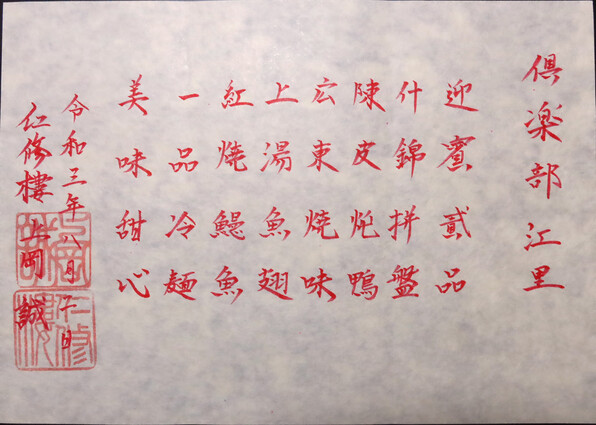 倶楽部江里
迎賓貳品
什錦拼盤
陳皮炖鴨
広東焼味
上湯魚翅
紅焼鰻魚
一品冷麺
美味甜心
令和三年八月 日
仁修樓 上岡 誠